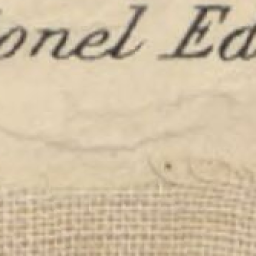 onel Ed